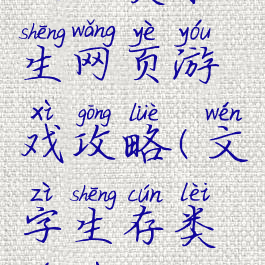 shēng wǎng yè yóu
生网页游
xì gōng lüè wén
戏攻略(文
zì shēng cún lèi
字生存类